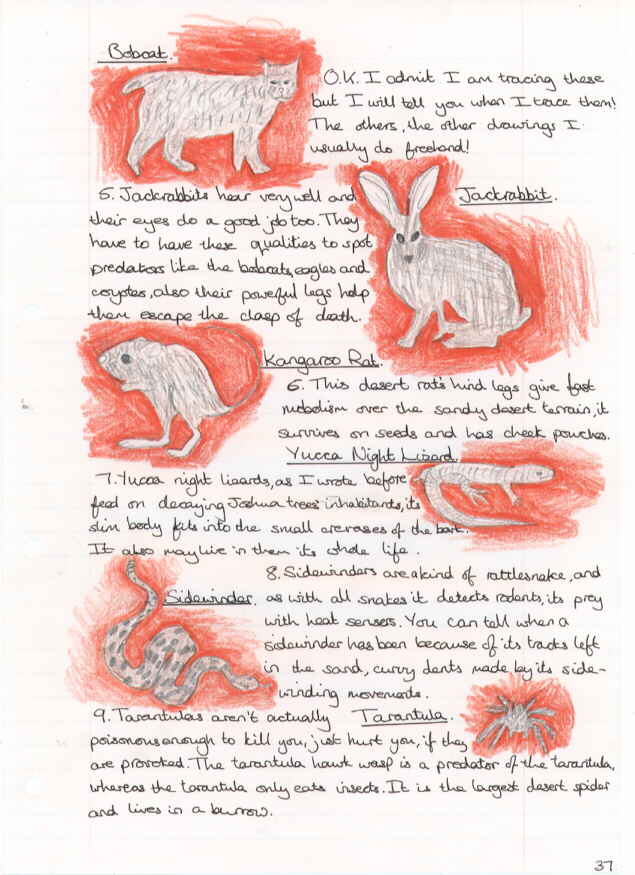 Bobcat.
O.K. I admit I am tracing these
but I will tell you when I trace them!
The others, the other drawings I
usually do freehand!
5. Jackrabbits hear very well and
their eyes do a good job too. They
have to have these qualities to spot
predators like the bobcats, eagles and
coyotes, also their powerful legs help
them escape the clasp of death.
Jackrabbit.
Kangaroo Rat.
6. This desert rat's hind legs give fast
mobolism over the sandy desert terrain, it
survives on seeds and has cheek pouches.
Yucca Night Lizard
7. Yucca night lizards, as I wrote before
feed on decaying Joshua trees inhabitants, its
slim body fits into the small crevases of the bark.
It also may live in them its whole life.
Sidewinder.
8. Sidewinders are a kind of rattlesnake, and
as with all snakes it detects rodents, its prey
with heat sensers. You can tell when a
sidewinder has been because of its tracks left
in the sand, curvy dents made by its side-
winding movements.
Tarantula.
9. Tarantulas aren't actually
poisonous enough to kill you, just hurt you, if they
are provoked. The tarantula hawk wasp is a predator of the tarantula,
whereas the tarantula only eats insects. It is the largest desert spider
and lives in a burrow.
37